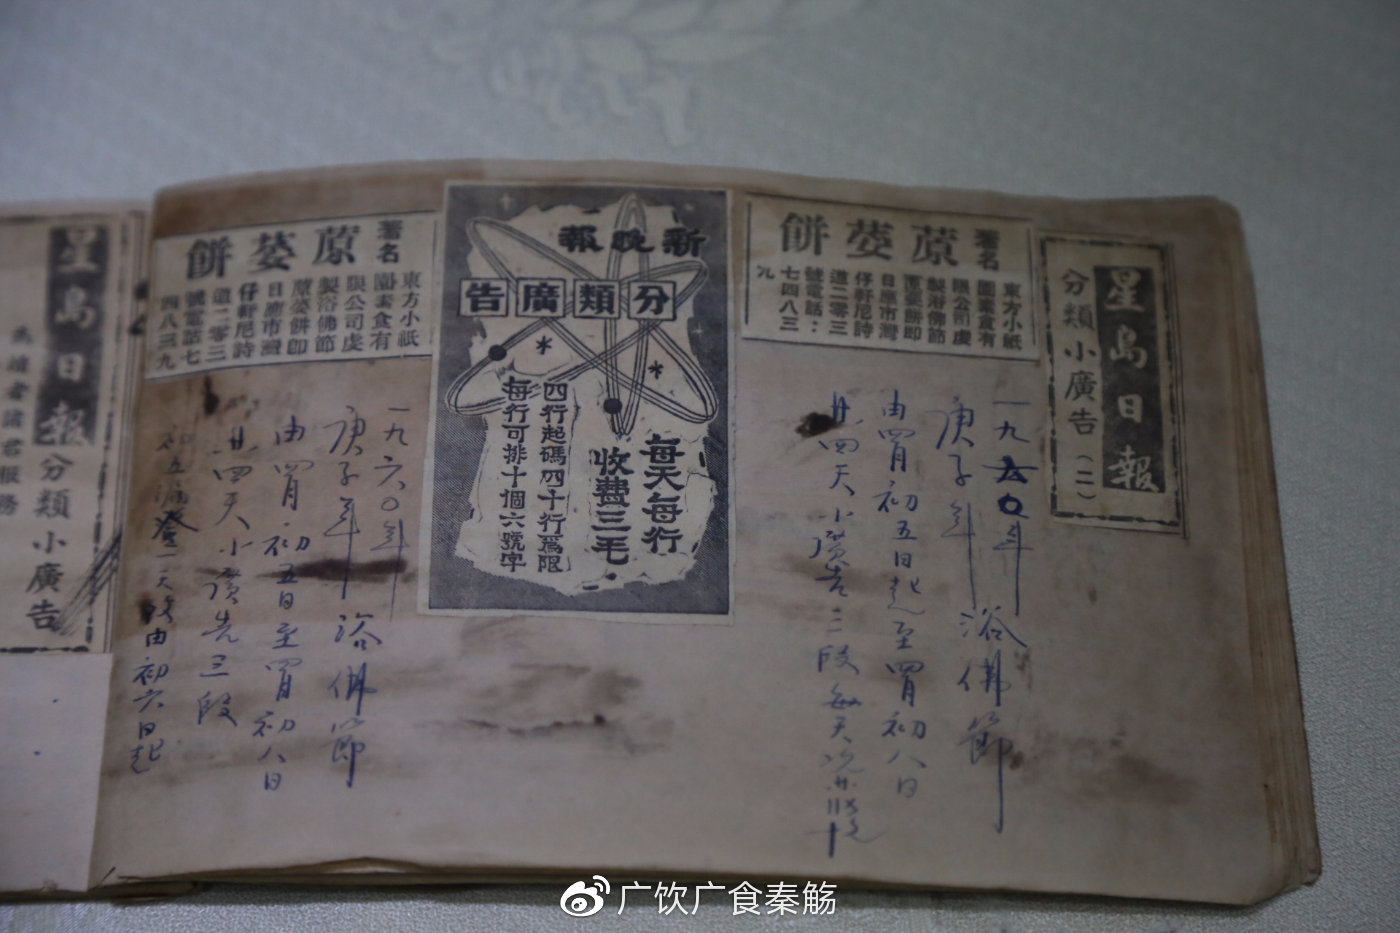 星島日報
分類小廣告(二)
著名
蒝荽餅
東方小祇
園素食有
限公司虔
製浴佛節
蒝荽餅即
日應市灣
仔軒尼詩
道二零三
號電話：
七四八三
九
一九六〇年
庚子年浴佛節
由四月初五日起至四月初八日
廿四天小廣告三段每天
新晚報
分類廣告
每天每行
收費三毛
四行起碼四十行爲限
每行可排十個六號字
著名
蒝荽餅
東方小祇
園素食有
限公司虔
製浴佛節
蒝荽餅即
日應市灣
仔軒尼詩
道二零三
號電話七
四八三九
一九六〇年
庚子年浴佛節
由四月初五日至四月初八日
廿四天小廣告三段
初五漏登一天由初六日起
星島日報
分類小廣告
爲讀者諸君服務
广饮广食秦觞